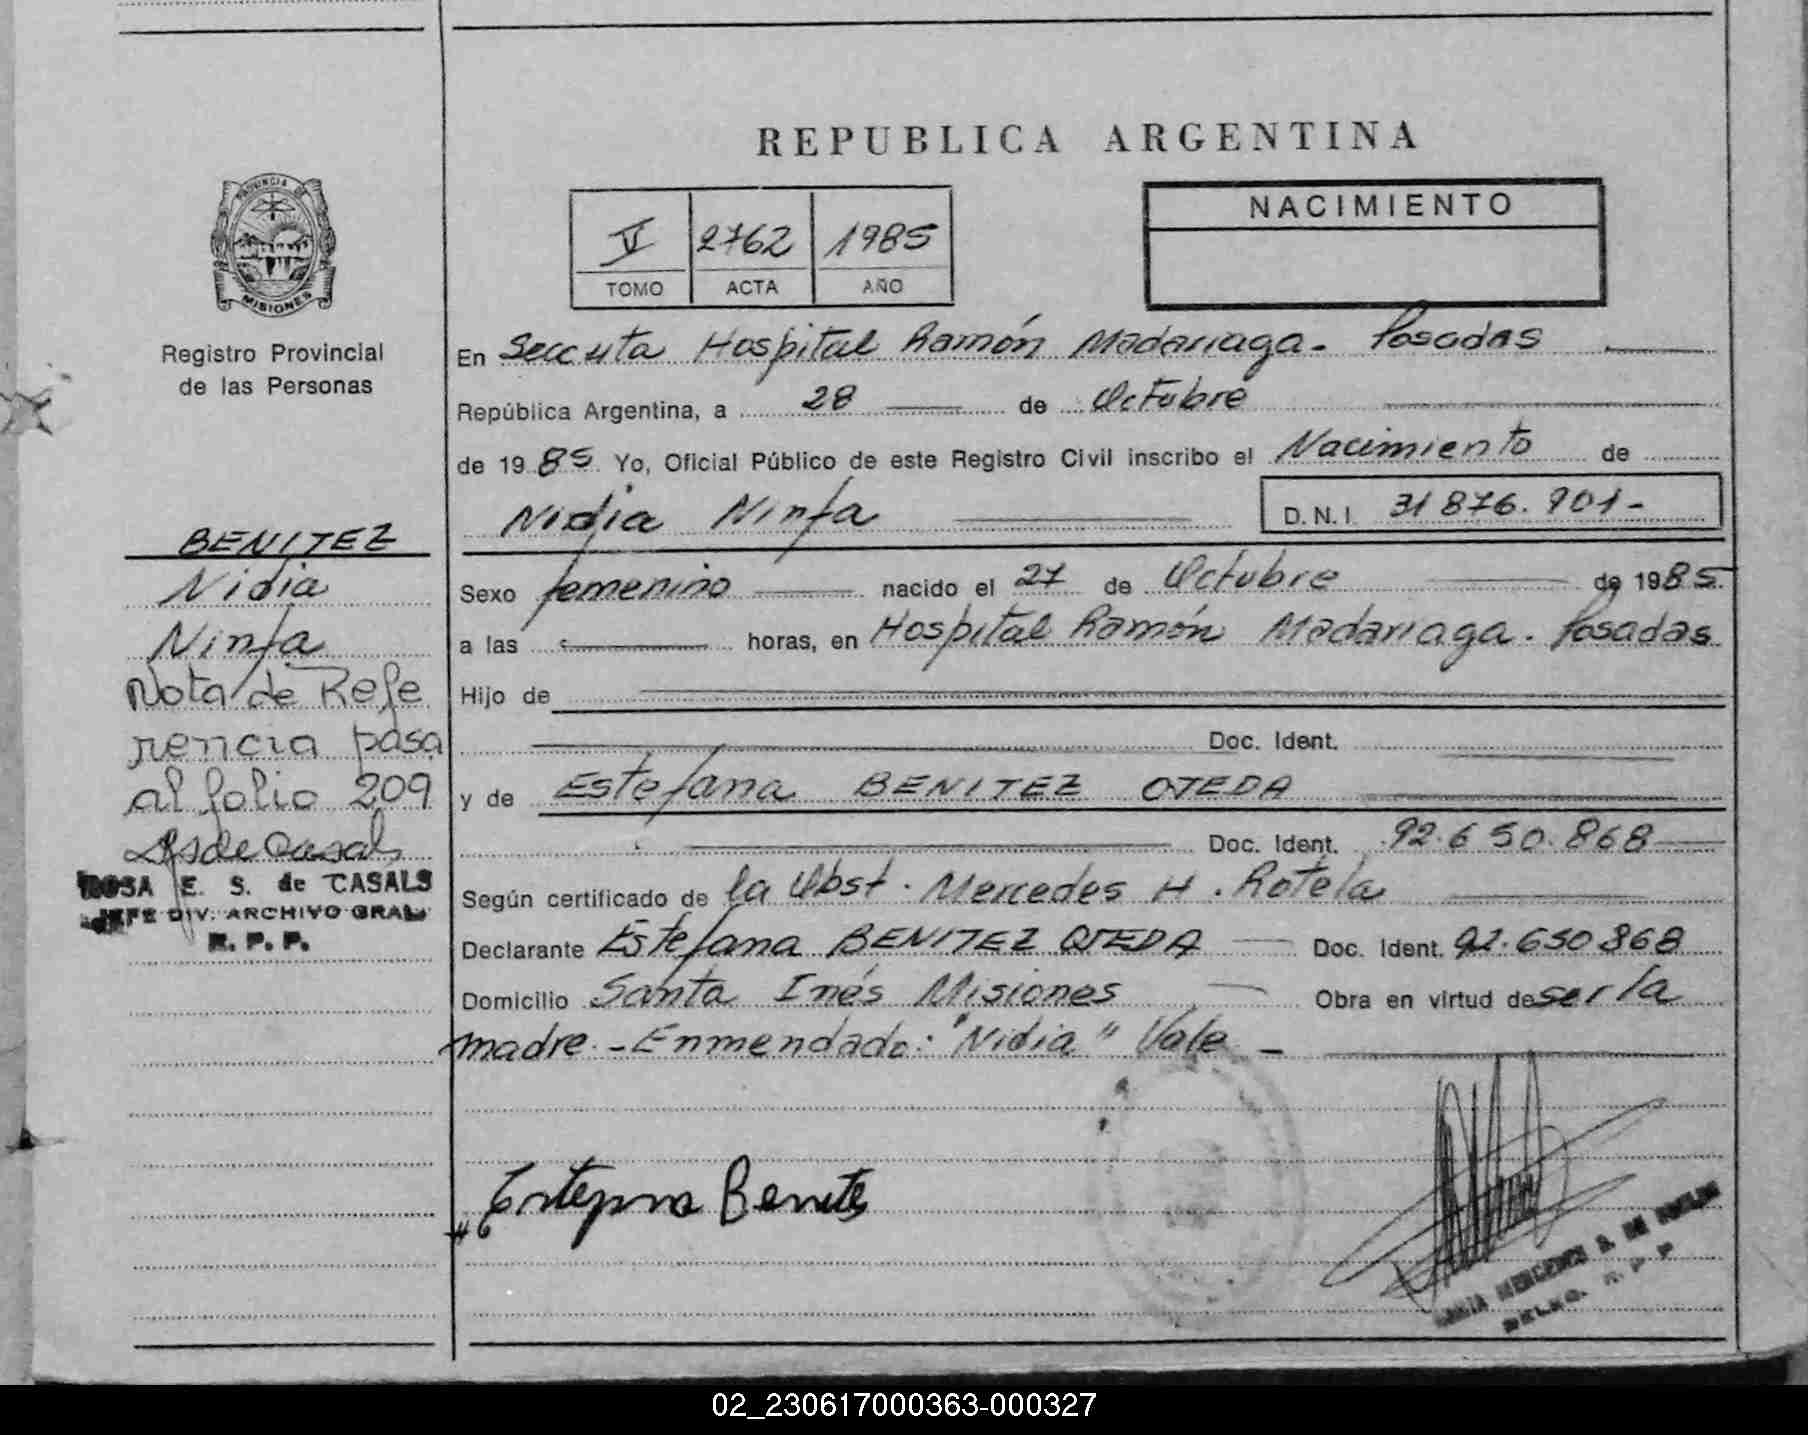 REPUBLICA ARGENTINA
PROVINCIA DE
MISIONES
Registro Provincial
de las Personas
V 2762 1985
TOMO ACTA AÑO
NACIMIENTO
En Seccuta Hospital Ramón Madariaga - Posadas
República Argentina, a 28 de Octubre
de 1985 Yo, Oficial Público de este Registro Civil inscribo el Nacimiento de
Nidia Ninfa D.N.I. 31 876.901-
Sexo femenino nacido el 27 de Octubre de 1985
a las horas, en Hospital Ramón Madariaga. Posadas
Hijo de
Doc. Ident.
y de Estefana BENITEZ OJEDA
Doc. Ident. 92.650.868
Según certificado de la Obst. Mercedes H. Rotela
Declarante Estefana BENITEZ OJEDA Doc. Ident. 92.650868
Domicilio Santa Inés Misiones Obra en virtud de ser la
madre - Enmendado: "Nidia" Vale -
BENITEZ
Nidia
Ninfa
Nota de Refe
rencia pasa
al folio 209
ROSA E. S. de CASALS
JEFE DIV. ARCHIVO GRAL
R. P. P.
Benites
02_230617000363-000327